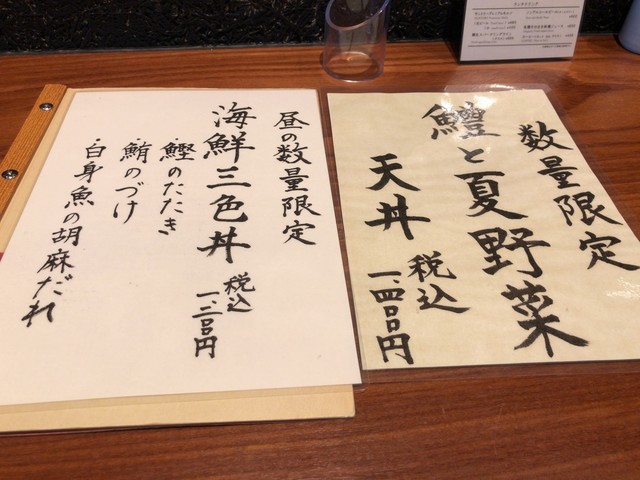 昼の数量限定
海鮮三色丼
税込
一、二〇〇円
・鰹のたたき
・鮪のづけ
・白身魚の胡麻だれ
数量限定
鱧と夏野菜
天丼
税込
一、四〇〇円